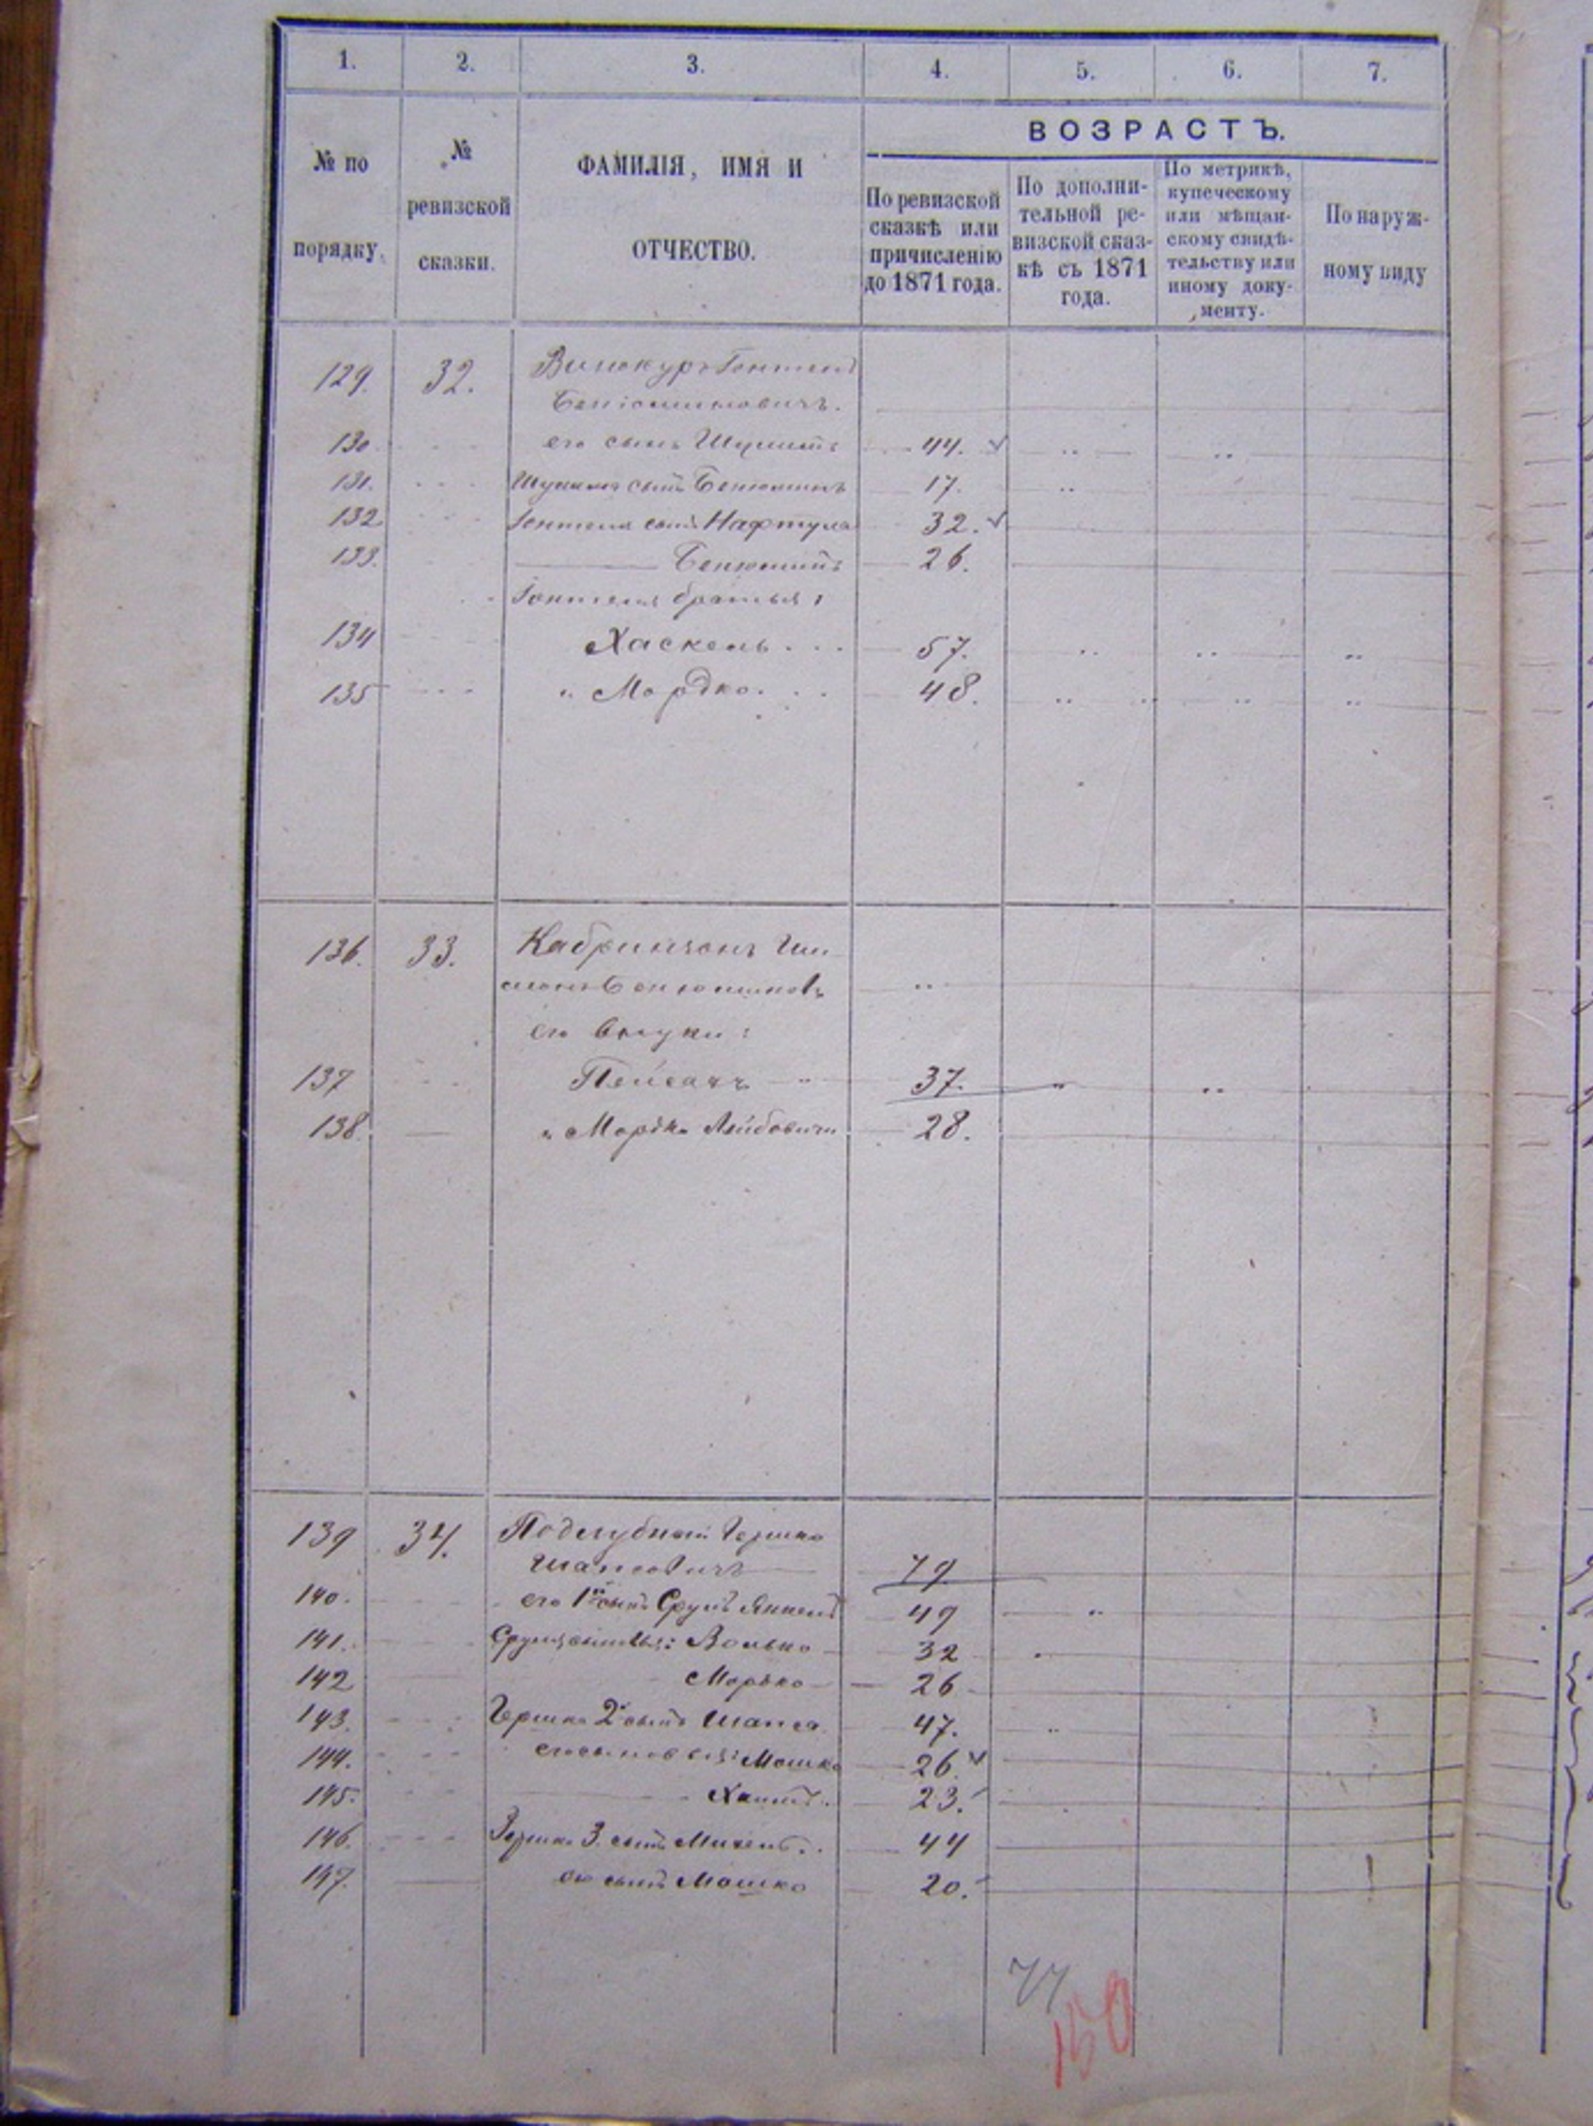 1. 2. 3. 4. 5. 6. 7.
№ по порядку.
№ ревизской сказки.
ФАМИЛІЯ, ИМЯ И ОТЧЕСТВО.
ВОЗРАСТЪ.
По ревизской сказкѣ или причисленію до 1871 года.
По дополнительной ревизской сказкѣ съ 1871 года.
По метрикѣ, купеческому или мѣщанскому свидѣтельству или иному документу.
По наружному виду
129. 32. Винокуръ
130 его сынъ 44.
131. сынъ Бенюминъ 17.
132 сынъ Нафтула 32.
133. Бенюминъ 26.
братья:
134 Хаскель 57.
135 " Мордко. 48.
136. 33.
его внуки:
137 Пейсахъ 37.
138. " Мордко Лейбовичи 28.
139 34. Поделубный Гершко
Шапсовичъ 79
140. его 1й сынъ Сруль Янкель 49
141. Сруля сыновья: Волько 32
142 Мордко 26
143. Гершка 2й сынъ Шапса 47.
144. его сыновья: Мошко 26
145. Хаимъ. 23.
146. Гершка 3. сынъ Михель 44
147. его сынъ Мошко 20.
77
150